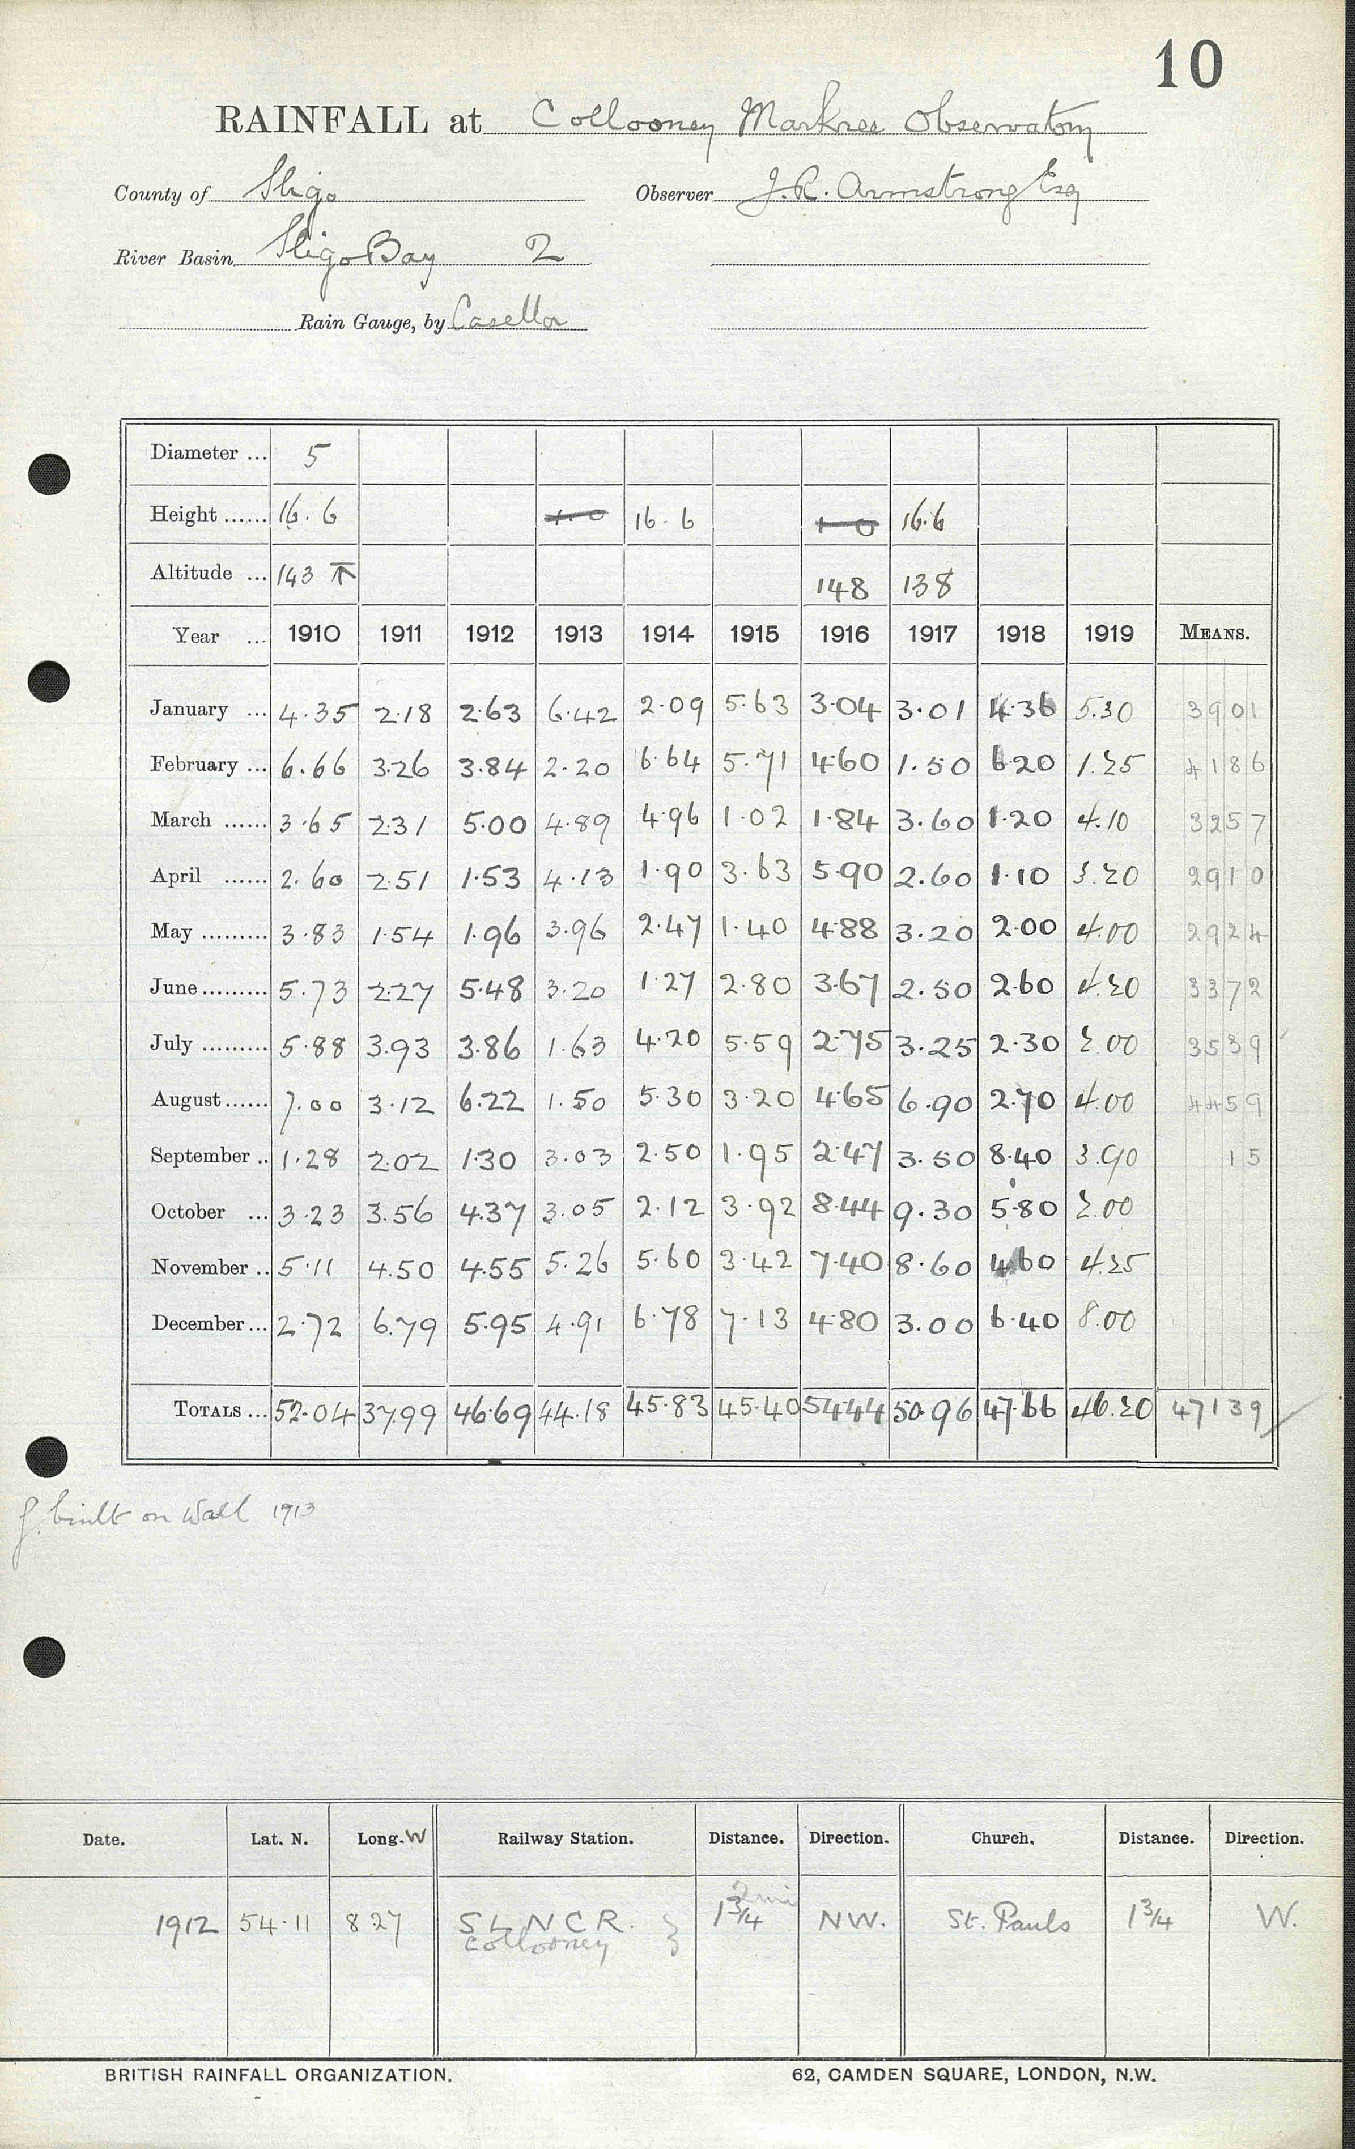 10
RAINFALL at Collooney Markree Observatory
County of Sligo Observer J.R. Armstrong Esq
River Basin Sligo Bay 2
Rain Gauge, by Casella
Diameter ... 5
Height ...... 16.6 1-0 16.6 1-0 16.6
Altitude ... 143 ⊼ 148 138
Year ... 1910 1911 1912 1913 1914 1915 1916 1917 1918 1919 MEANS.
January ... 4.35 2.18 2.63 6.42 2.09 5.63 3.04 3.01 4.36 5.30 3901
February ... 6.66 3.26 3.84 2.20 6.64 5.71 4.60 1.50 6.20 1.25 4186
March ...... 3.65 2.31 5.00 4.89 4.96 1.02 1.84 3.60 1.20 4.10 3257
April ...... 2.60 2.51 1.53 4.13 1.90 3.63 5.90 2.60 1.10 3.20 2910
May ......... 3.83 1.54 1.96 3.96 2.47 1.40 4.88 3.20 2.00 4.00 2924
June......... 5.73 2.27 5.48 3.20 1.27 2.80 3.67 2.50 2.60 4.20 3372
July ......... 5.88 3.93 3.86 1.63 4.20 5.59 2.75 3.25 2.30 2.00 3539
August...... 7.00 3.12 6.22 1.50 5.30 3.20 4.65 6.90 2.70 4.00 4459
September .. 1.28 2.02 1.30 3.03 2.50 1.95 2.47 3.50 8.40 3.90 15
October ... 3.23 3.56 4.37 3.05 2.12 3.92 8.44 9.30 5.80 2.00
November .. 5.11 4.50 4.55 5.26 5.60 3.42 7.40 8.60 4.60 4.25
December... 2.72 6.79 5.95 4.91 6.78 7.13 4.80 3.00 6.40 8.00
TOTALS ... 52.04 37.99 46.69 44.18 45.83 45.40 54.44 50.96 47.66 46.20 47139
g. built on wall 1913
Date. Lat. N. Long. W Railway Station. Distance. Direction. Church. Distance. Direction.
2 mi
1912 54.11 8 27 S L N C R. 1 3/4 NW. St. Pauls 1 3/4 W.
Collooney
BRITISH RAINFALL ORGANIZATION. 62, CAMDEN SQUARE, LONDON, N.W.